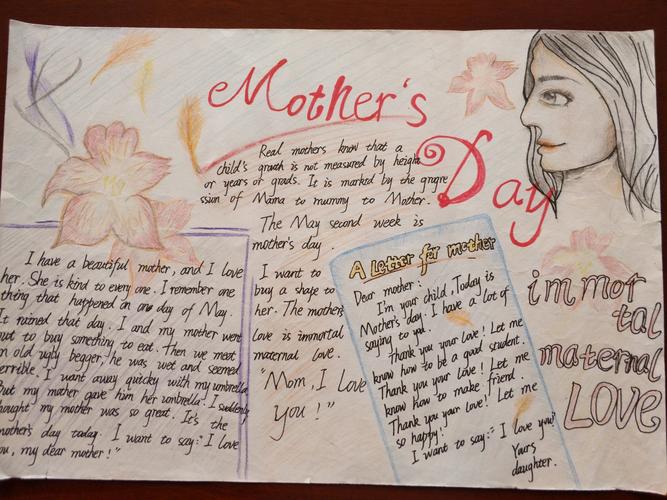 Mother's
Day
Real mothers know that a
child's growth is not measured by height
or years or grads. It is marktd by the grogre
ssion of Mama to mummy to Mother.
The May second week is
mother's day.
I have a beautiful mother, and I love
her. She is kind to every one. I remember one
thing that happened in one day of May.
It ruined that day. I and my mother went
out to buy something to eat. Then we meet
an old ugly begger, he was wet and seemed
terrible. I want away quitcky with my umbrella
But my mother gave him her umbrella. I suddenly
thought my mother was so great. It's the
mother's day today. I want to say:"I love
you, my dear mother!"
I want to
buy a shape to
her. The mothers
love is immortal
maternal love.
"Mom, I love
You!"
A Letter for mother
Dear mother:
I'm your child, Today is
Mother's day. I have a lot of
saying to you.
Thank you your love! Let me
know how to be a good student.
Thank you your love! Let me
know how to make friend.
Thank you your love! Let me
so happy!
I want to say:"I love you!
Yours
daughter.
immor
tal
maternal
LOVE